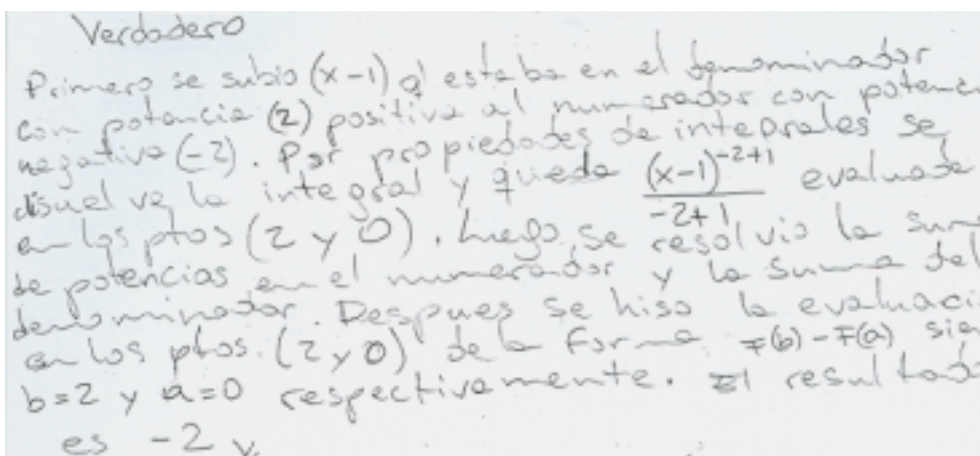 Verdadero
Primero se subio (x-1) q' estaba en el denominador
con potencia (2) positiva al numerador con potenc
negativa (-2). Por propiedades de integrales se
disuelve la integral y queda (x-1)^{-2+1} / -2+1 evaluada
en los ptos (2 y 0). Luego se resolvio la sum
de potencias en el numerador y la suma del
denominador. Despues se hiso la evaluaci
en los ptos. (2 y 0) de la forma F(b)-F(a) sie
b=2 y a=0 respectivamente. El resultado
es -2